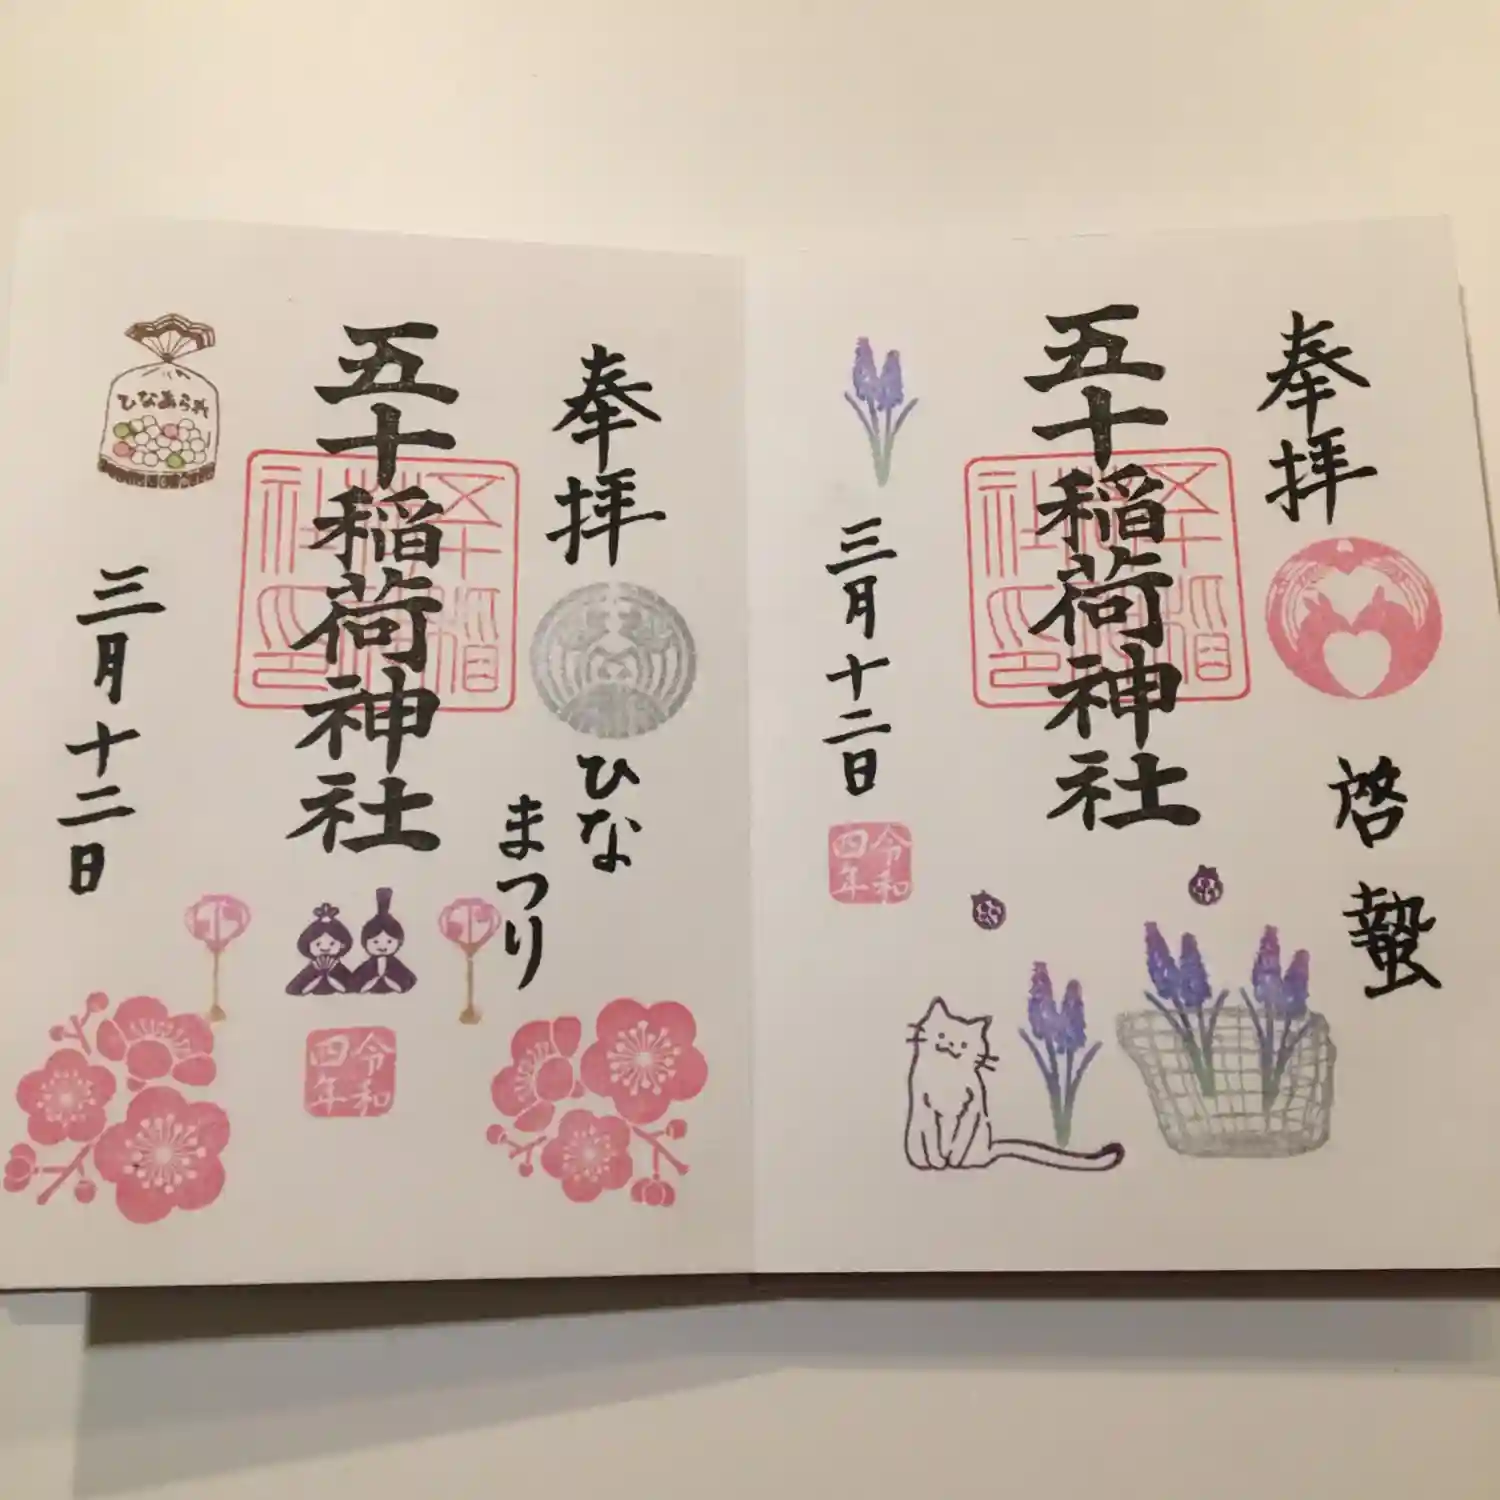 奉拝
啓蟄
五十稲荷神社
三月十二日
令和
四年
奉拝
ひな
まつり
五十稲荷神社
ひなあられ
三月十二日
令和
四年